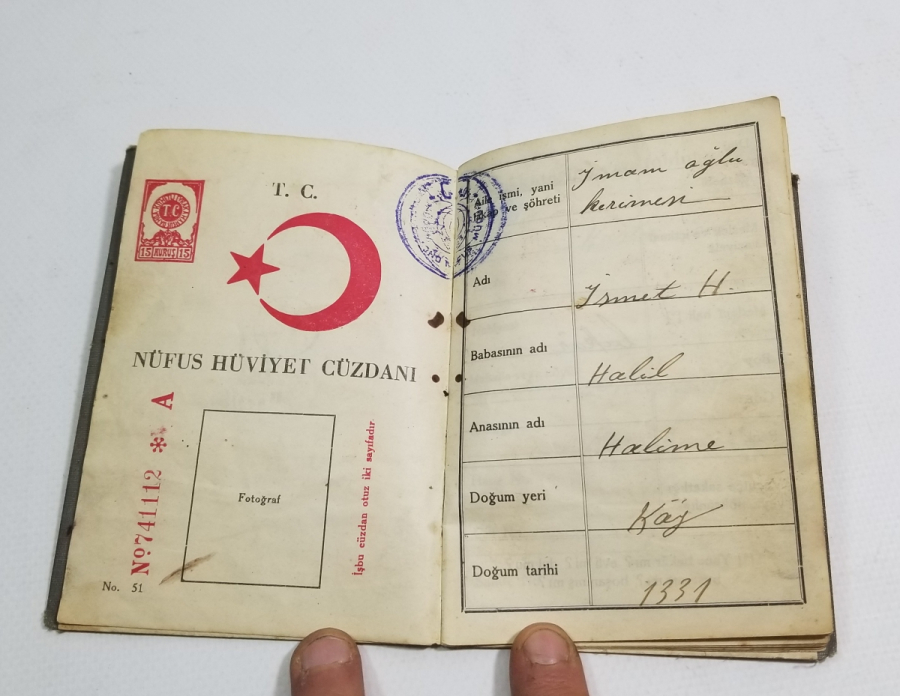 T. C.
T C
15 KURUŞ 15
NÜFUS HÜVİYET CÜZDANI
No 741112 * A
Fotoğraf
İşbu cüzdan otuz iki sayıfadır
No. 51
Aile ismi, yani
lakap ve şöhreti
İmam oğlu
kerimesi
Adı
İsmet H.
Babasının adı
Halil
Anasının adı
Halime
Doğum yeri
Köy
Doğum tarihi
1331